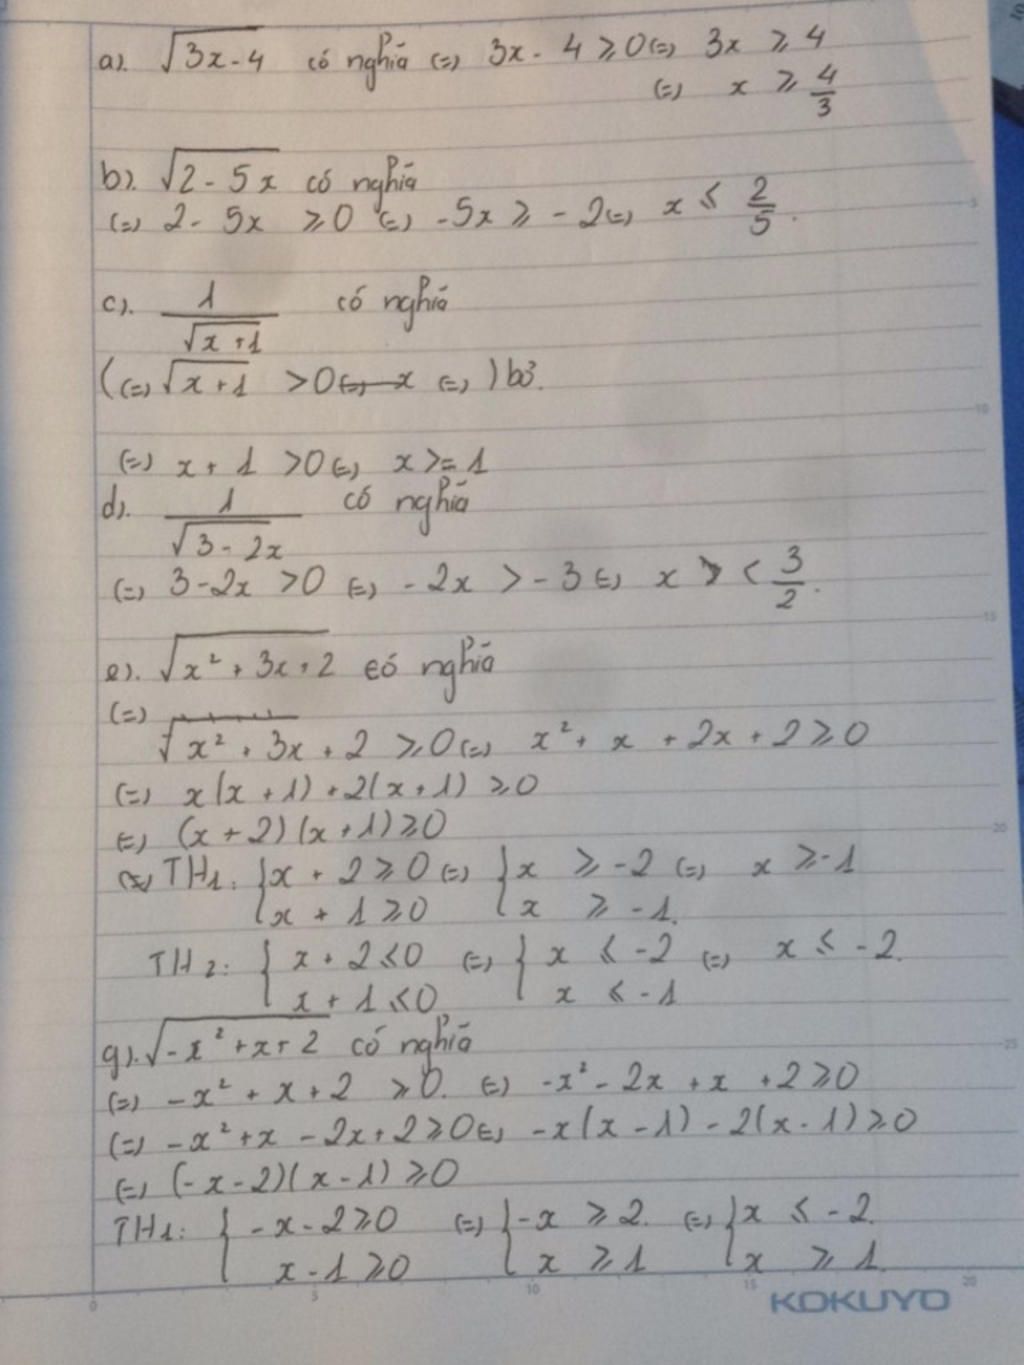 a). √3x-4 có nghĩa (=) 3x - 4 ⩾ 0 (=) 3x ⩾ 4
(=) x ⩾ 4/3
b). √2 - 5x có nghĩa
(=) 2 - 5x ⩾ 0 (=) -5x ⩾ -2 (=) x ⩽ 2/5.
c). 1/√x+1 có nghĩa
((=) √x+1 > 0 (=) x (=) ) bỏ.
(=) x + 1 > 0 (=) x >= 1
d). 1/√3-2x có nghĩa
(=) 3-2x > 0 (=) -2x > -3 (=) x < 3/2.
e). √x² + 3x + 2 có nghĩa
(=)
√x² + 3x + 2 ⩾ 0 (=) x² + x + 2x + 2 ⩾ 0
(=) x(x + 1) + 2(x + 1) ⩾ 0
(=) (x + 2)(x + 1) ⩾ 0
TH1: { x + 2 ⩾ 0 (=) { x ⩾ -2 (=) x ⩾ -1
x + 1 ⩾ 0 x ⩾ -1.
TH2: { x + 2 ⩽ 0 (=) { x ⩽ -2 (=) x ⩽ -2.
x + 1 ⩽ 0 x ⩽ -1
g). √-x² + x + 2 có nghĩa
(=) -x² + x + 2 ⩾ 0. (=) -x² - 2x + x + 2 ⩾ 0
(=) -x² + x - 2x + 2 ⩾ 0 (=) -x(x - 1) - 2(x - 1) ⩾ 0
(=) (-x - 2)(x - 1) ⩾ 0
TH1: { -x - 2 ⩾ 0 (=) { -x ⩾ 2. (=) { x ⩽ -2.
x - 1 ⩾ 0 x ⩾ 1 x ⩾ 1.
0 5 10 15 20
KOKUYO
5
10
15
20
25